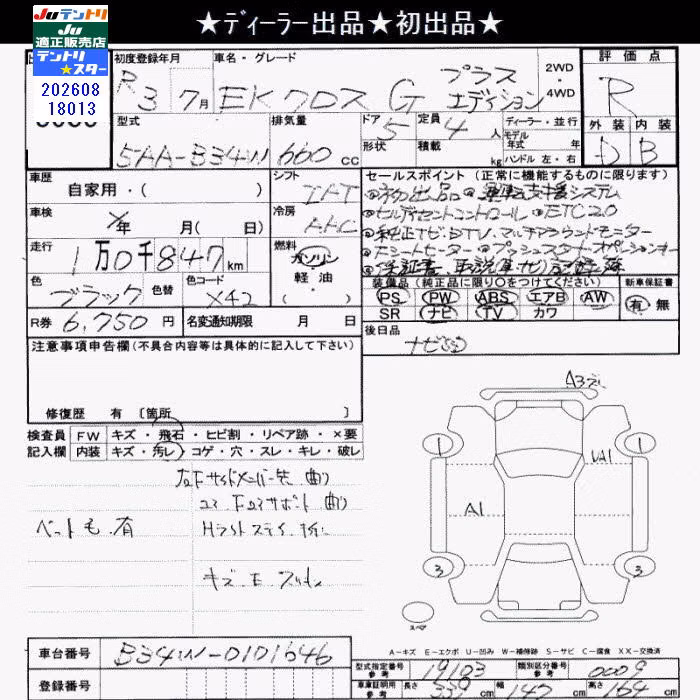 ★ディーラー出品★初出品★
JUテントリ
JU
適正販売店
テントリ
★スター
202608
18013
初度登録年月
R3 7月
車名・グレード
EKクロス G プラスエディション
2WD
・
4WD
評価点
R
外装 内装
D B
型式
5AA-B34W
排気量
660 cc
ドア
5
形状
定員
4人
積載 kg
ディーラー・並行
モデル
年式 年
ハンドル 左・右
車歴
自家用・( )
シフト
冷房
AAC
車検
年 月( 日)
走行
1万0千847km
燃料
ガソリン
軽・油
( )
色
ブラック
色替
色コード
X42
R券 6,750円
名変通知期限 月 日
セールスポイント (正常に機能するものに限ります)
初出品 運転支援システム
ETC2.0
純正ナビ マルチアラウンドモニター
シートヒーター プッシュスタート
保証書 取説
装備品 (純正品に限り○をつけてください)
PS PW ABS エアB AW
SR ナビ TV カワ
新車保証書
有 無
後日品
ナビ
注意事項申告欄 (不具合内容等は具体的に記入して下さい)
修復歴 有 〔箇所 〕
検査員
記入欄
FW キズ・飛石・ヒビ割・リペア跡・×要
内装 キズ・汚レ・コゲ・穴・スレ・キレ・破レ
左右Fサイドメンバー先 曲り
コアサポート 曲り
ペット毛 有
キズ E
A3
1 1
UA1
A1
3 3
スペア
A-キズ E-エクボ U-凹み W-補修跡 S-サビ C-腐食 XX-交換済
車台番号 B34W-0101646
登録番号
型式指定番号
参考
19103
類別区分番号
参考
0009
車庫証明用
参考
長さ 339cm
幅 147cm
高さ 164cm